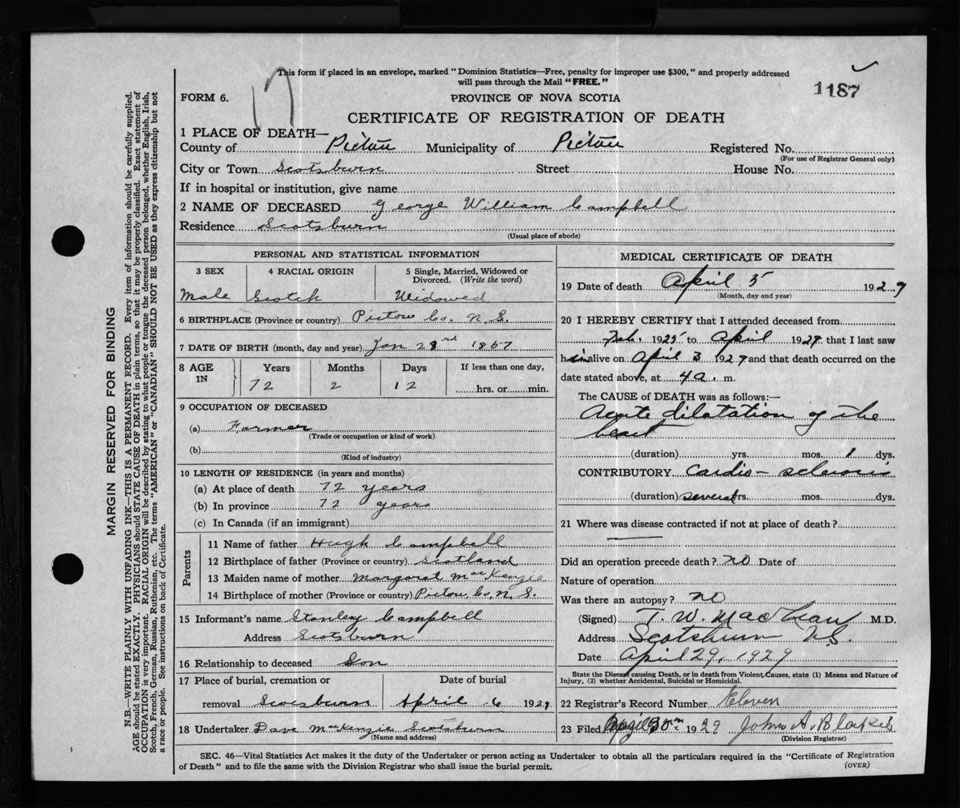 This form if placed in an envelope, marked "Dominion Statistics—Free, penalty for improper use $300," and properly addressed
will pass through the Mail "FREE."
17
1187
FORM 6.
PROVINCE OF NOVA SCOTIA
CERTIFICATE OF REGISTRATION OF DEATH
1 PLACE OF DEATH—
County of Pictou Municipality of Pictou Registered No.
(For use of Registrar General only)
City or Town Scotsburn Street House No.
If in hospital or institution, give name
2 NAME OF DECEASED George William Campbell
Residence Scotsburn
(Usual place of abode)
PERSONAL AND STATISTICAL INFORMATION
3 SEX 4 RACIAL ORIGIN 5 Single, Married, Widowed or
Divorced. (Write the word)
Male Scotch Widowed
6 BIRTHPLACE (Province or country) Pictou Co. N.S.
7 DATE OF BIRTH (month, day and year) Jan 23rd 1857
8 AGE IN Years Months Days If less than one day,
72 2 12 hrs. or min.
9 OCCUPATION OF DECEASED
(a) Farmer
(Trade or occupation or kind of work)
(b)
(Kind of industry)
10 LENGTH OF RESIDENCE (in years and months)
(a) At place of death 72 years
(b) In province 72 years
(c) In Canada (if an immigrant)
Parents
11 Name of father Hugh Campbell
12 Birthplace of father (Province or country) Scotland
13 Maiden name of mother Margaret MacKenzie
14 Birthplace of mother (Province or country) Pictou Co, N.S.
15 Informant's name Stanley Campbell
Address Scotsburn
16 Relationship to deceased Son
17 Place of burial, cremation or Date of burial
removal Scotsburn April 6 1929
18 Undertaker Dave MacKenzie Scotsburn
(Name and address)
MEDICAL CERTIFICATE OF DEATH
19 Date of death April 5 1929
(Month, day and year)
20 I HEREBY CERTIFY that I attended deceased from
Feb. to April 1929 that I last saw
him alive on April 3 1929 and that death occurred on the
date stated above, at 4 a. m.
The CAUSE of DEATH was as follows:—
Acute dilatation of the
heart
(duration) yrs. mos. 1 dys.
CONTRIBUTORY Cardio-sclerosis
(duration) several yrs. mos. dys.
21 Where was disease contracted if not at place of death?
Did an operation precede death? no Date of
Nature of operation
Was there an autopsy? no
(Signed) T. W. MacLean M.D.
Address Scotsburn N.S.
Date April 29, 1929
State the Disease causing Death, or in death from Violent Causes, state (1) Means and Nature of
Injury, (2) whether Accidental, Suicidal or Homicidal.
22 Registrar's Record Number Eleven
23 Filed April 30th 1929 John A.
(Division Registrar)
SEC. 46—Vital Statistics Act makes it the duty of the Undertaker or person acting as Undertaker to obtain all the particulars required in the "Certificate of Registration
of Death" and to file the same with the Division Registrar who shall issue the burial permit.
(OVER)
MARGIN RESERVED FOR BINDING
N.B.—WRITE PLAINLY WITH UNFADING INK—THIS IS A PERMANENT RECORD. Every item of information should be carefully supplied.
AGE should be stated EXACTLY. PHYSICIANS should STATE CAUSE OF DEATH in plain terms, so that it may be properly classified. Exact statement of
OCCUPATION is very important. RACIAL ORIGIN will be described by stating to what people or tongue the deceased person belonged, whether English, Irish,
Scotch, French, German, Russian, Ruthenian, etc. The terms "AMERICAN" or "CANADIAN" SHOULD NOT BE USED as they express citizenship but not
a race or people. See instructions on back of Certificate.